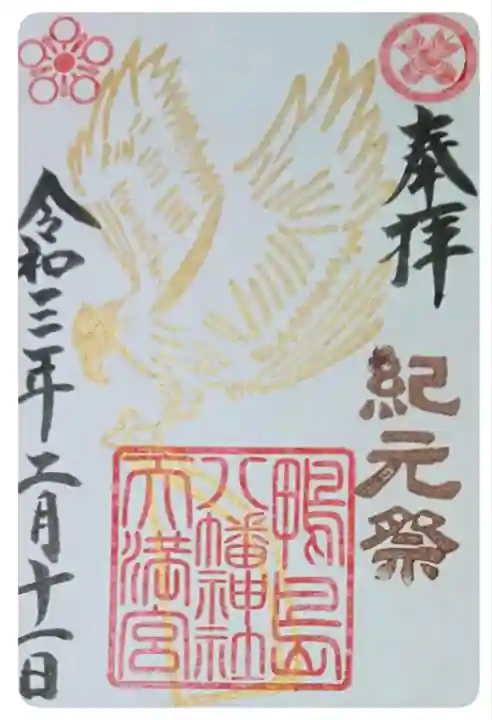 奉拝
紀元祭
鴨島
八幡神社
天満宮
令和三年二月十一日